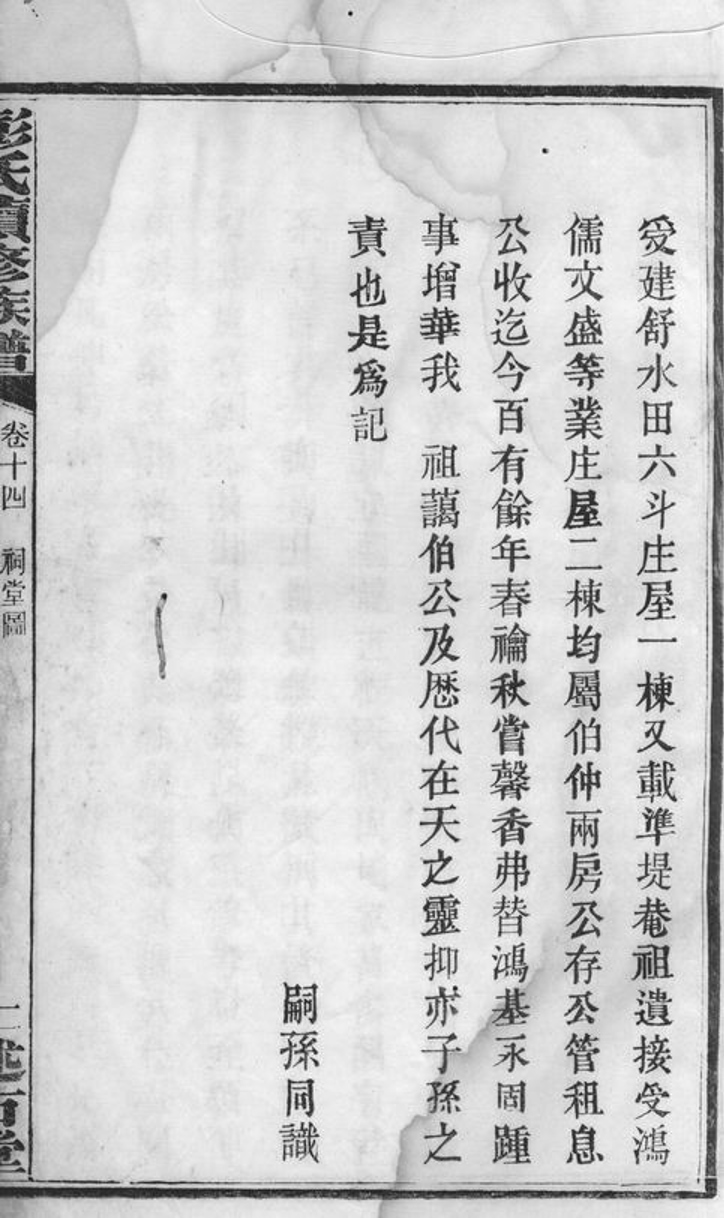 受建舒水田六斗庄屋一棟又載準堤菴祖遺接受鴻
儒文盛等業庄屋二棟均屬伯仲兩房公存公管租息
公收迄今百有餘年春禴秋嘗馨香弗替鴻基永固踵
事增華我　祖藹伯公及歷代在天之靈抑亦子孫之
責也是爲記
嗣孫同識
彭氏續修族譜
卷十四　祠堂圖
二
述古堂